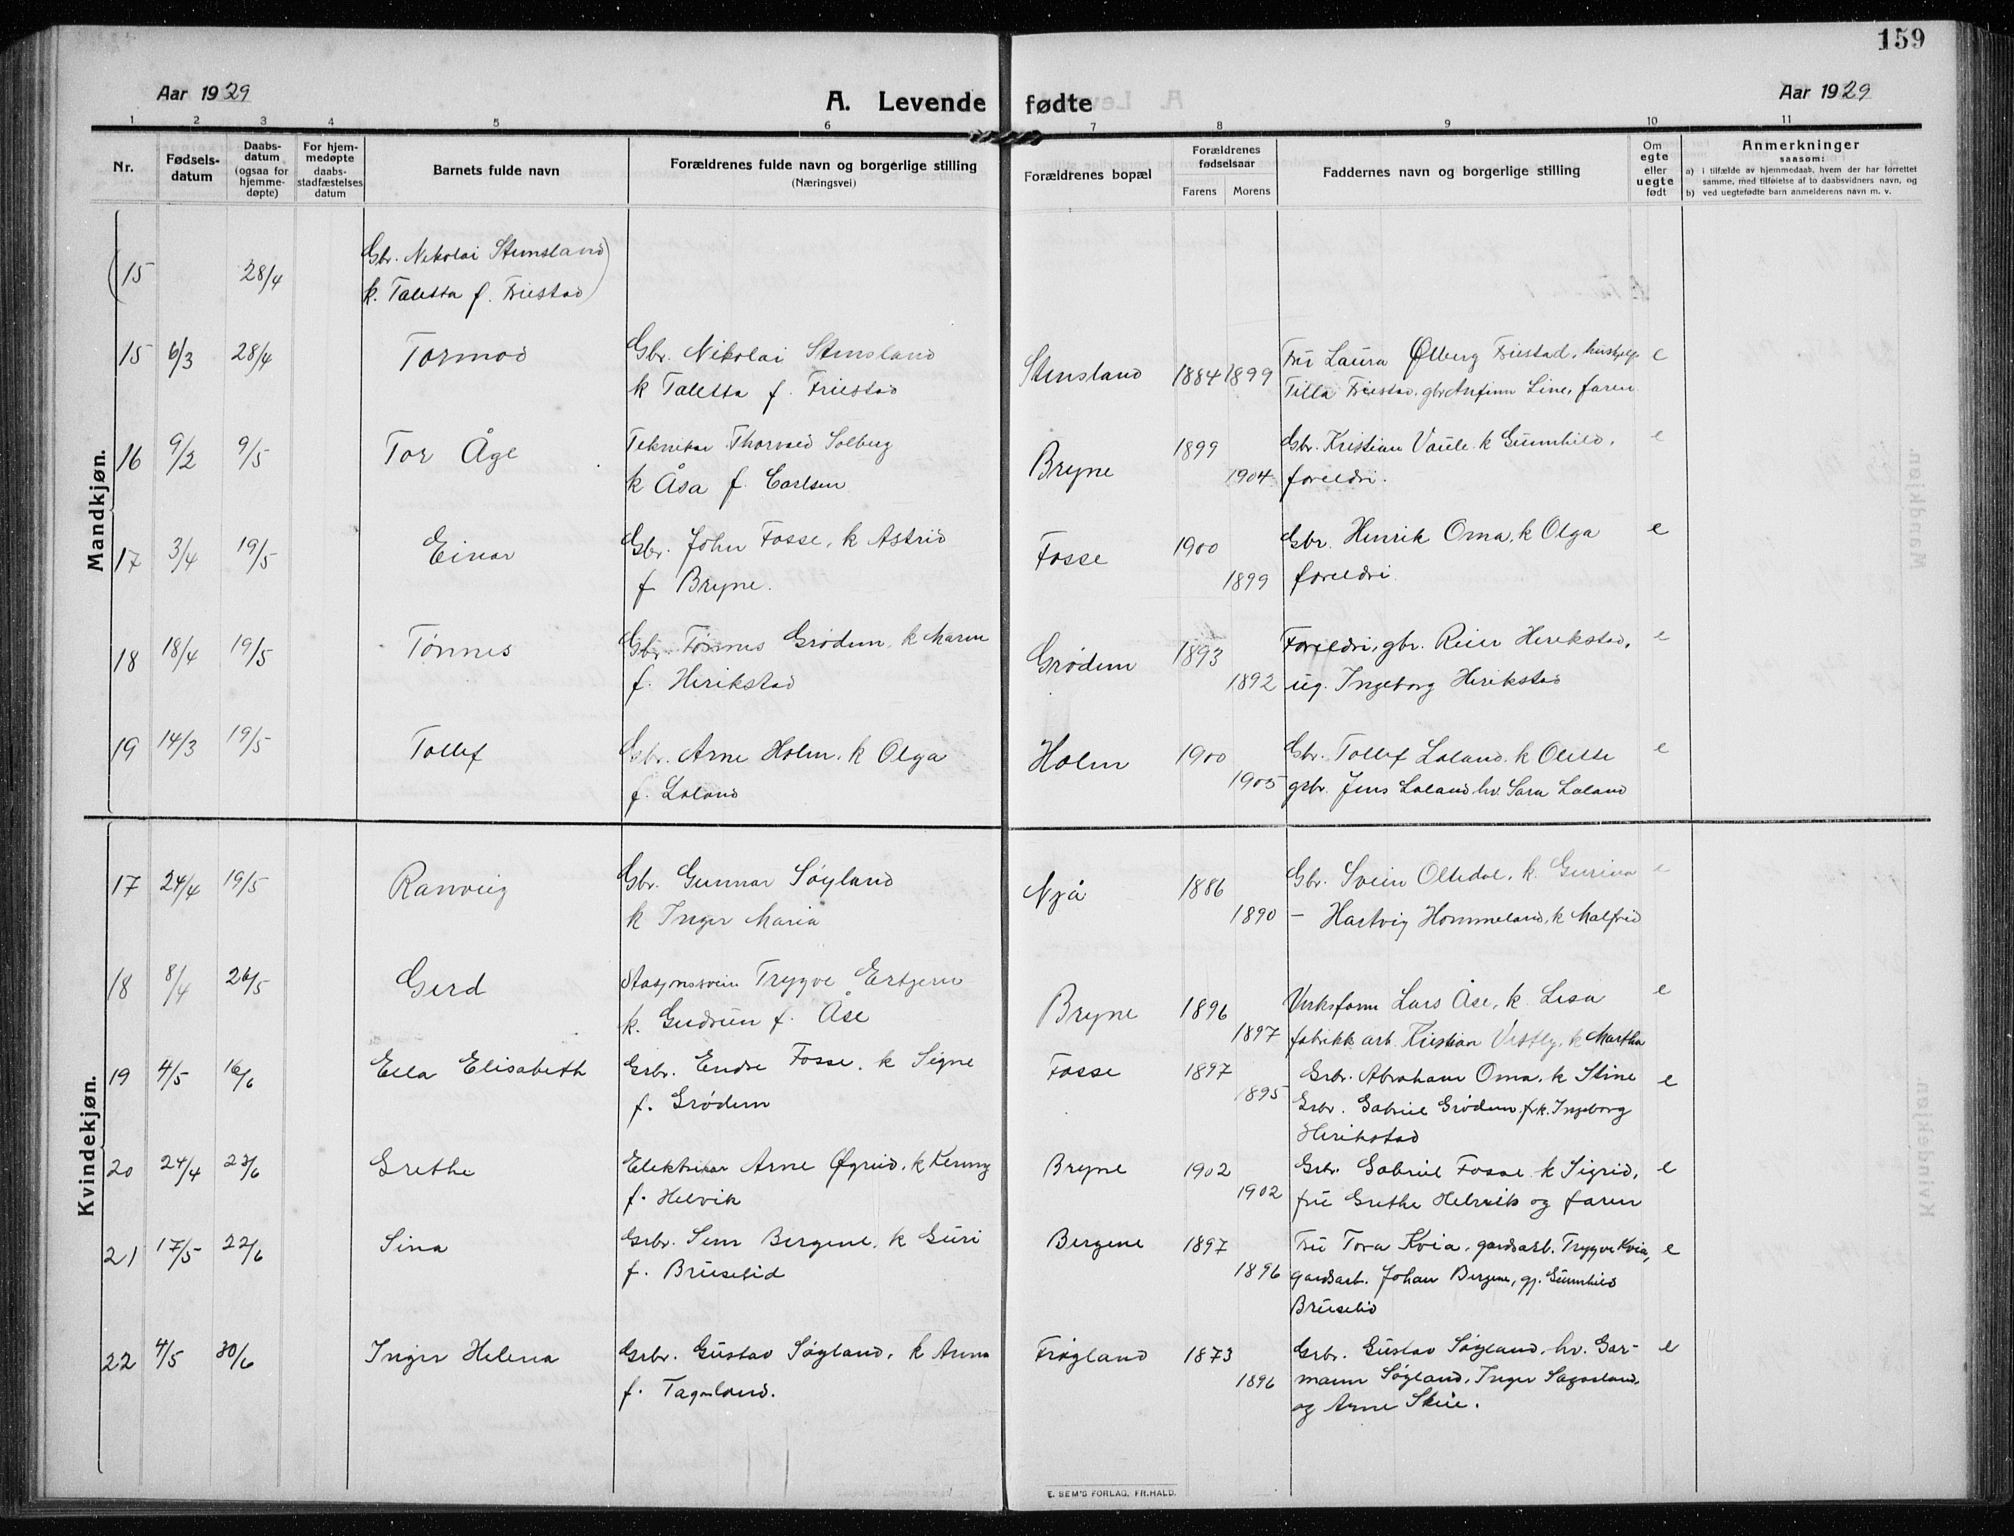 159
Aar 1929
A. Levende fødte
Aar 1929
1 2 3 4 5 6 7 8 9 10 11
Nr.
Fødsels-
datum
Daabs-
datum
(ogsaa for
hjemme-
døpte)
For hjem-
medøpte
daabs-
stadfæstelses
datum
Barnets fulde navn
Forældrenes fulde navn og borgerlige stilling
(Næringsvei)
Forældrenes bopæl
Forældrenes
fødselsaar
Farens Morens
Faddernes navn og borgerlige stilling
Om
egte
eller
uegte
født
Anmerkninger
saasom:
a) i tilfælde av hjemmedaab, hvem der har forrettet
samme, med tilføielse af to daabsvidners navn, og
b) ved uegtefødte barn anmelderens navn m. v.
Mandkjøn.
(15 28/4 Gbr. Nikolai Stensland)
k. Taletta f. Friestad)
15 6/3 28/4 Tormod Gbr. Nikolai Stensland Stensland 1884 1899 Fru Laura Ølberg Friestad, hushjelp e
k Taletta f. Friestad Tilla Friestad, gbr Anfinn Line, faren
16 9/2 9/5 Tor Åge Tekniker Thorvald Solberg Bryne 1899 Gbr. Kristian Vaule k Gunnhild, e
k Åsa f. Carlsen 1904 foreldri.
17 3/4 19/5 Einar Gbr. John Fosse, k Astrid Fosse 1900 Gbr. Henrik Oma, k Olga e
f. Bryne. 1899 foreldri
18 18/4 19/5 Tønnes Gbr. Tønnes Grødem, k Maren Grødem 1893 Foreldri, gbr. Reier Herikstad, e
f. Herikstad 1892 ug. Ingeborg Herikstad
19 14/3 19/5 Tollef Gbr. Arne Holm, k Olga Holm 1900 Gbr. Tollef Laland, k Olette e
f. Laland 1905 grbr. Jens Laland hv. Sara Laland
Kvindekjøn.
17 24/4 19/5 Ranveig Gbr. Gunnar Søyland Njå 1886 Gbr. Svein Oltedal, k. Gurina e
k Inger Maria 1890 – Hartvig Hommeland, k Malfrid
18 8/4 26/5 Gerd Stasjonssvein Trygve Ertjern Bryne 1896 Verksform Lars Åse, k. Lisa e
k. Gudrun f. Åse 1897 fabrikk arb. Kristian Vestly, k Martha
19 4/5 16/6 Ella Elisabeth Grbr. Endre Fosse, k Signe Fosse 1897 Grbr. Abraham Oma, k Stine e
f. Grødem 1895 Grbr. Gabriel Grødem, frk. Ingeborg
Herikstad
20 24/4 23/6 Grethe Elektriker Arne Øgreid, k Kenny Bryne 1902 Grbr. Gabriel Fosse k Sigrid, e
f. Helvik 1902 fru Grethe Helvik og faren
21 17/5 22/6 Sina Grbr. Sem Bergene, k Guri Bergene 1897 Fru Tora Kvia, gardsarb. Trygve Kvia, e
f. Bruselid 1896 gardsarb. Johan Bergene, gj. Gunnhild
Bruselid
22 4/5 30/6 Inger Helena Grbr. Gustav Søyland, k Anna Frøyland 1873 Grbr. Gustav Søyland, hv. Gar- e
f. Tagsland. 1896 mann Søyland, Inger
og Arne Skeie.
E. SEM'S FORLAG, FR.HALD.